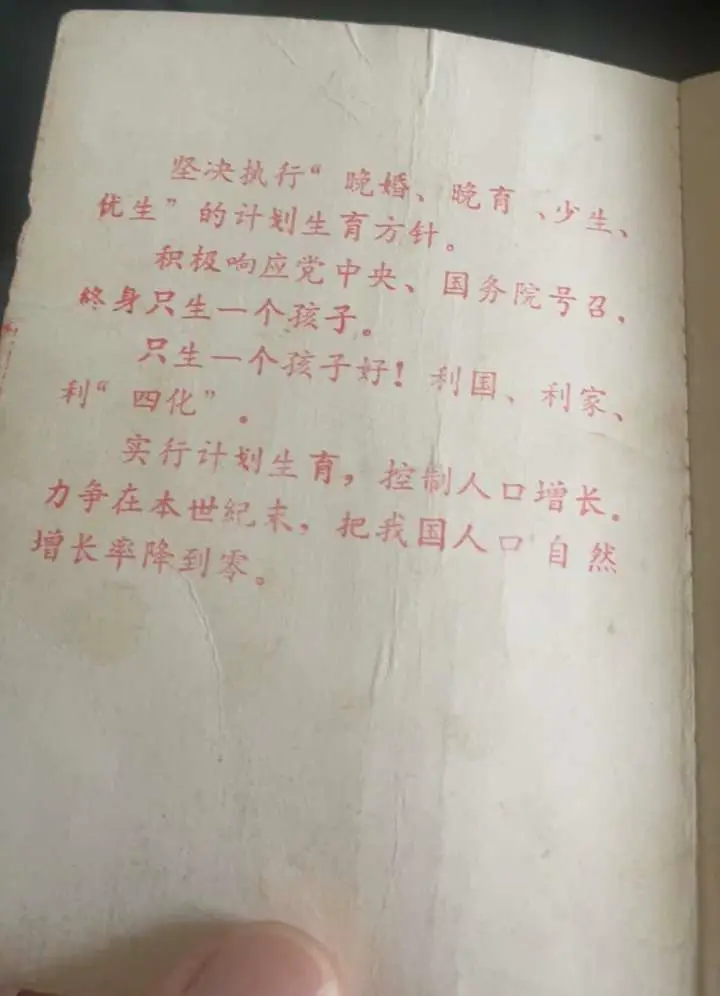 坚决执行“晚婚、晚育、少生、
优生”的计划生育方针。
积极响应党中央、国务院号召，
终身只生一个孩子。
只生一个孩子好！利国、利家、
利“四化”。
实行计划生育，控制人口增长。
力争在本世纪末，把我国人口自然
增长率降到零。